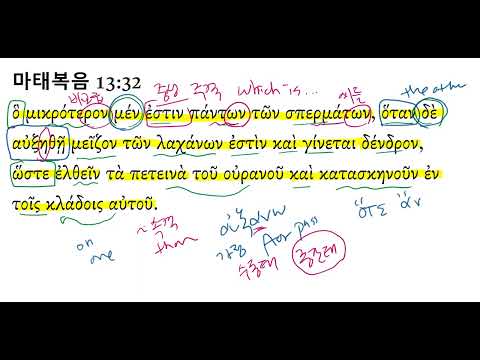 마태복음 13:32
비교급 중성 주격 which is... 씨들 the other
ὃ μικρότερον μέν ἐστιν πάντων τῶν σπερμάτων, ὅταν δὲ
αὐξηθῇ μεῖζον τῶν λαχάνων ἐστὶν καὶ γίνεται δένδρον,
ὥστε ἐλθεῖν τὰ πετεινὰ τοῦ οὐρανοῦ καὶ κατασκηνοῦν ἐν
τοῖς κλάδοις αὐτοῦ.
~ 주격 αὐξανω ὅτε ἄν
on than 가정 Aor pass
one 수동태